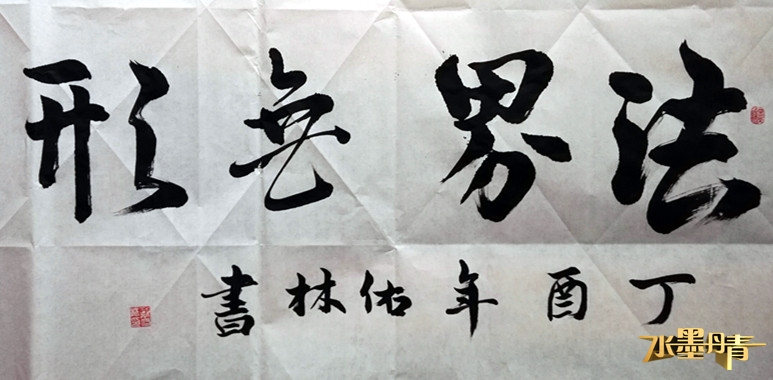 法界無形
丁酉年佑林書
水墨丹青